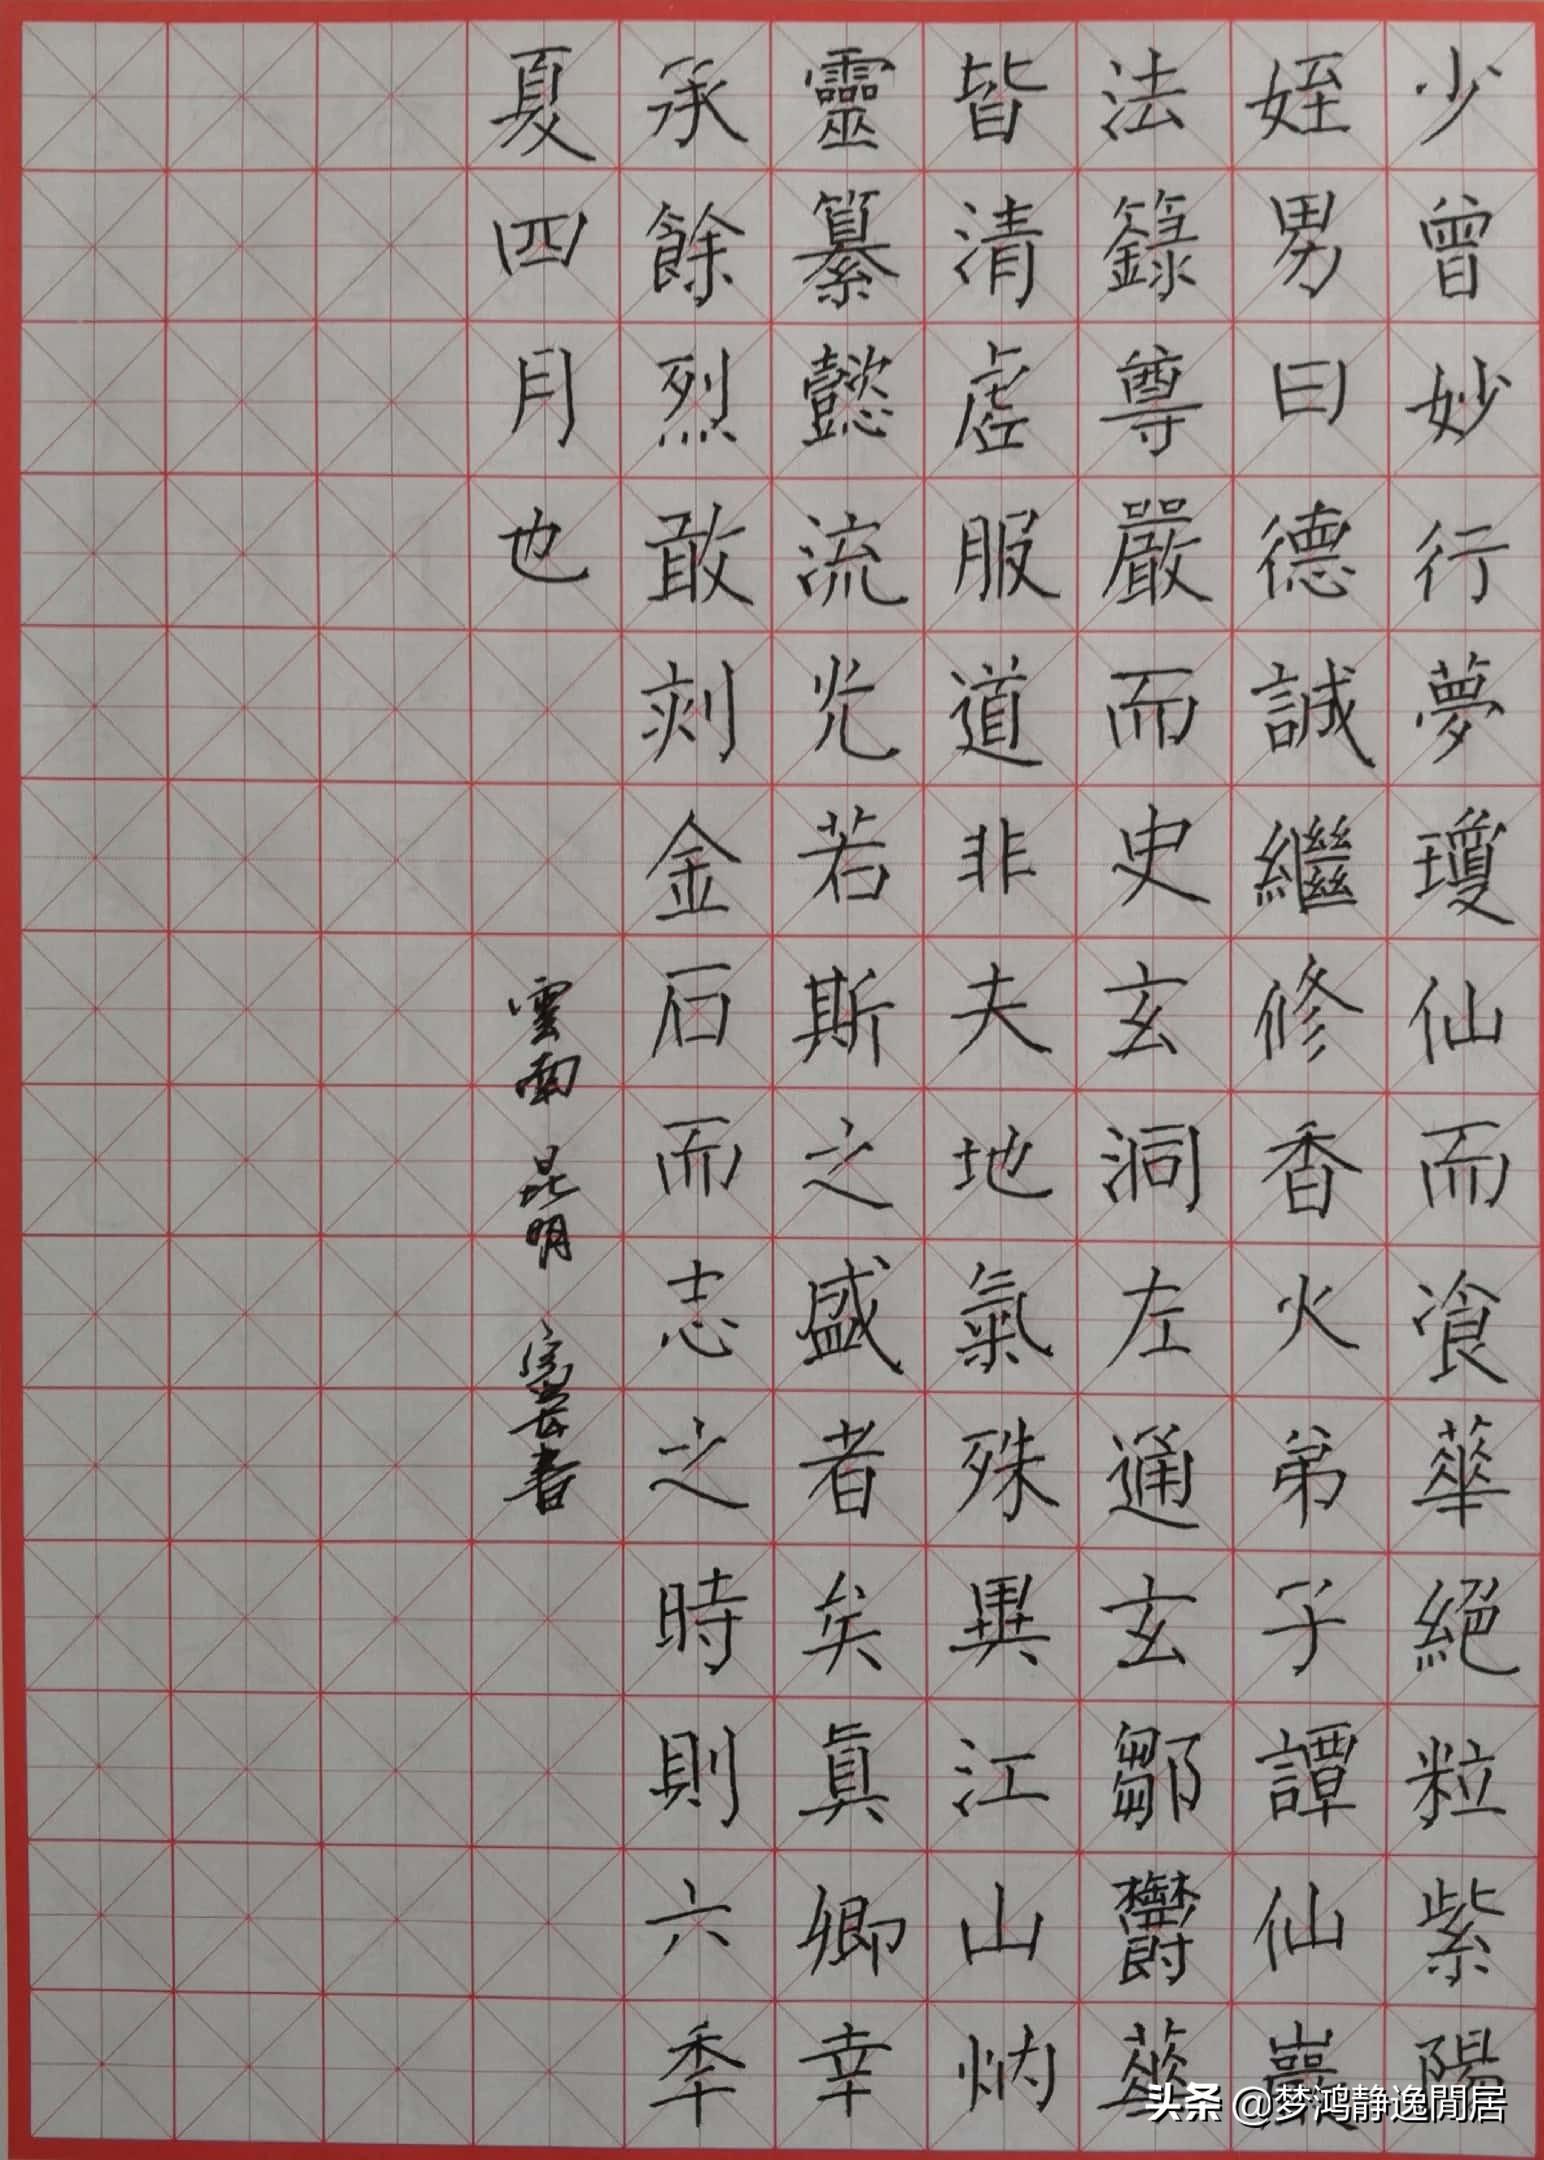 少曾妙行夢瓊仙而飡華絕粒紫陽
姪男曰德誠繼修香火弟子譚仙巖
法籙尊嚴而史玄洞左通玄鄒鬱華
皆清虛服道非夫地氣殊異江山炳
靈纂懿流光若斯之盛者矣真卿幸
承餘烈敢刻金石而志之時則六季
夏四月也
雲南 昆明
头条 @梦鸿静逸閒居